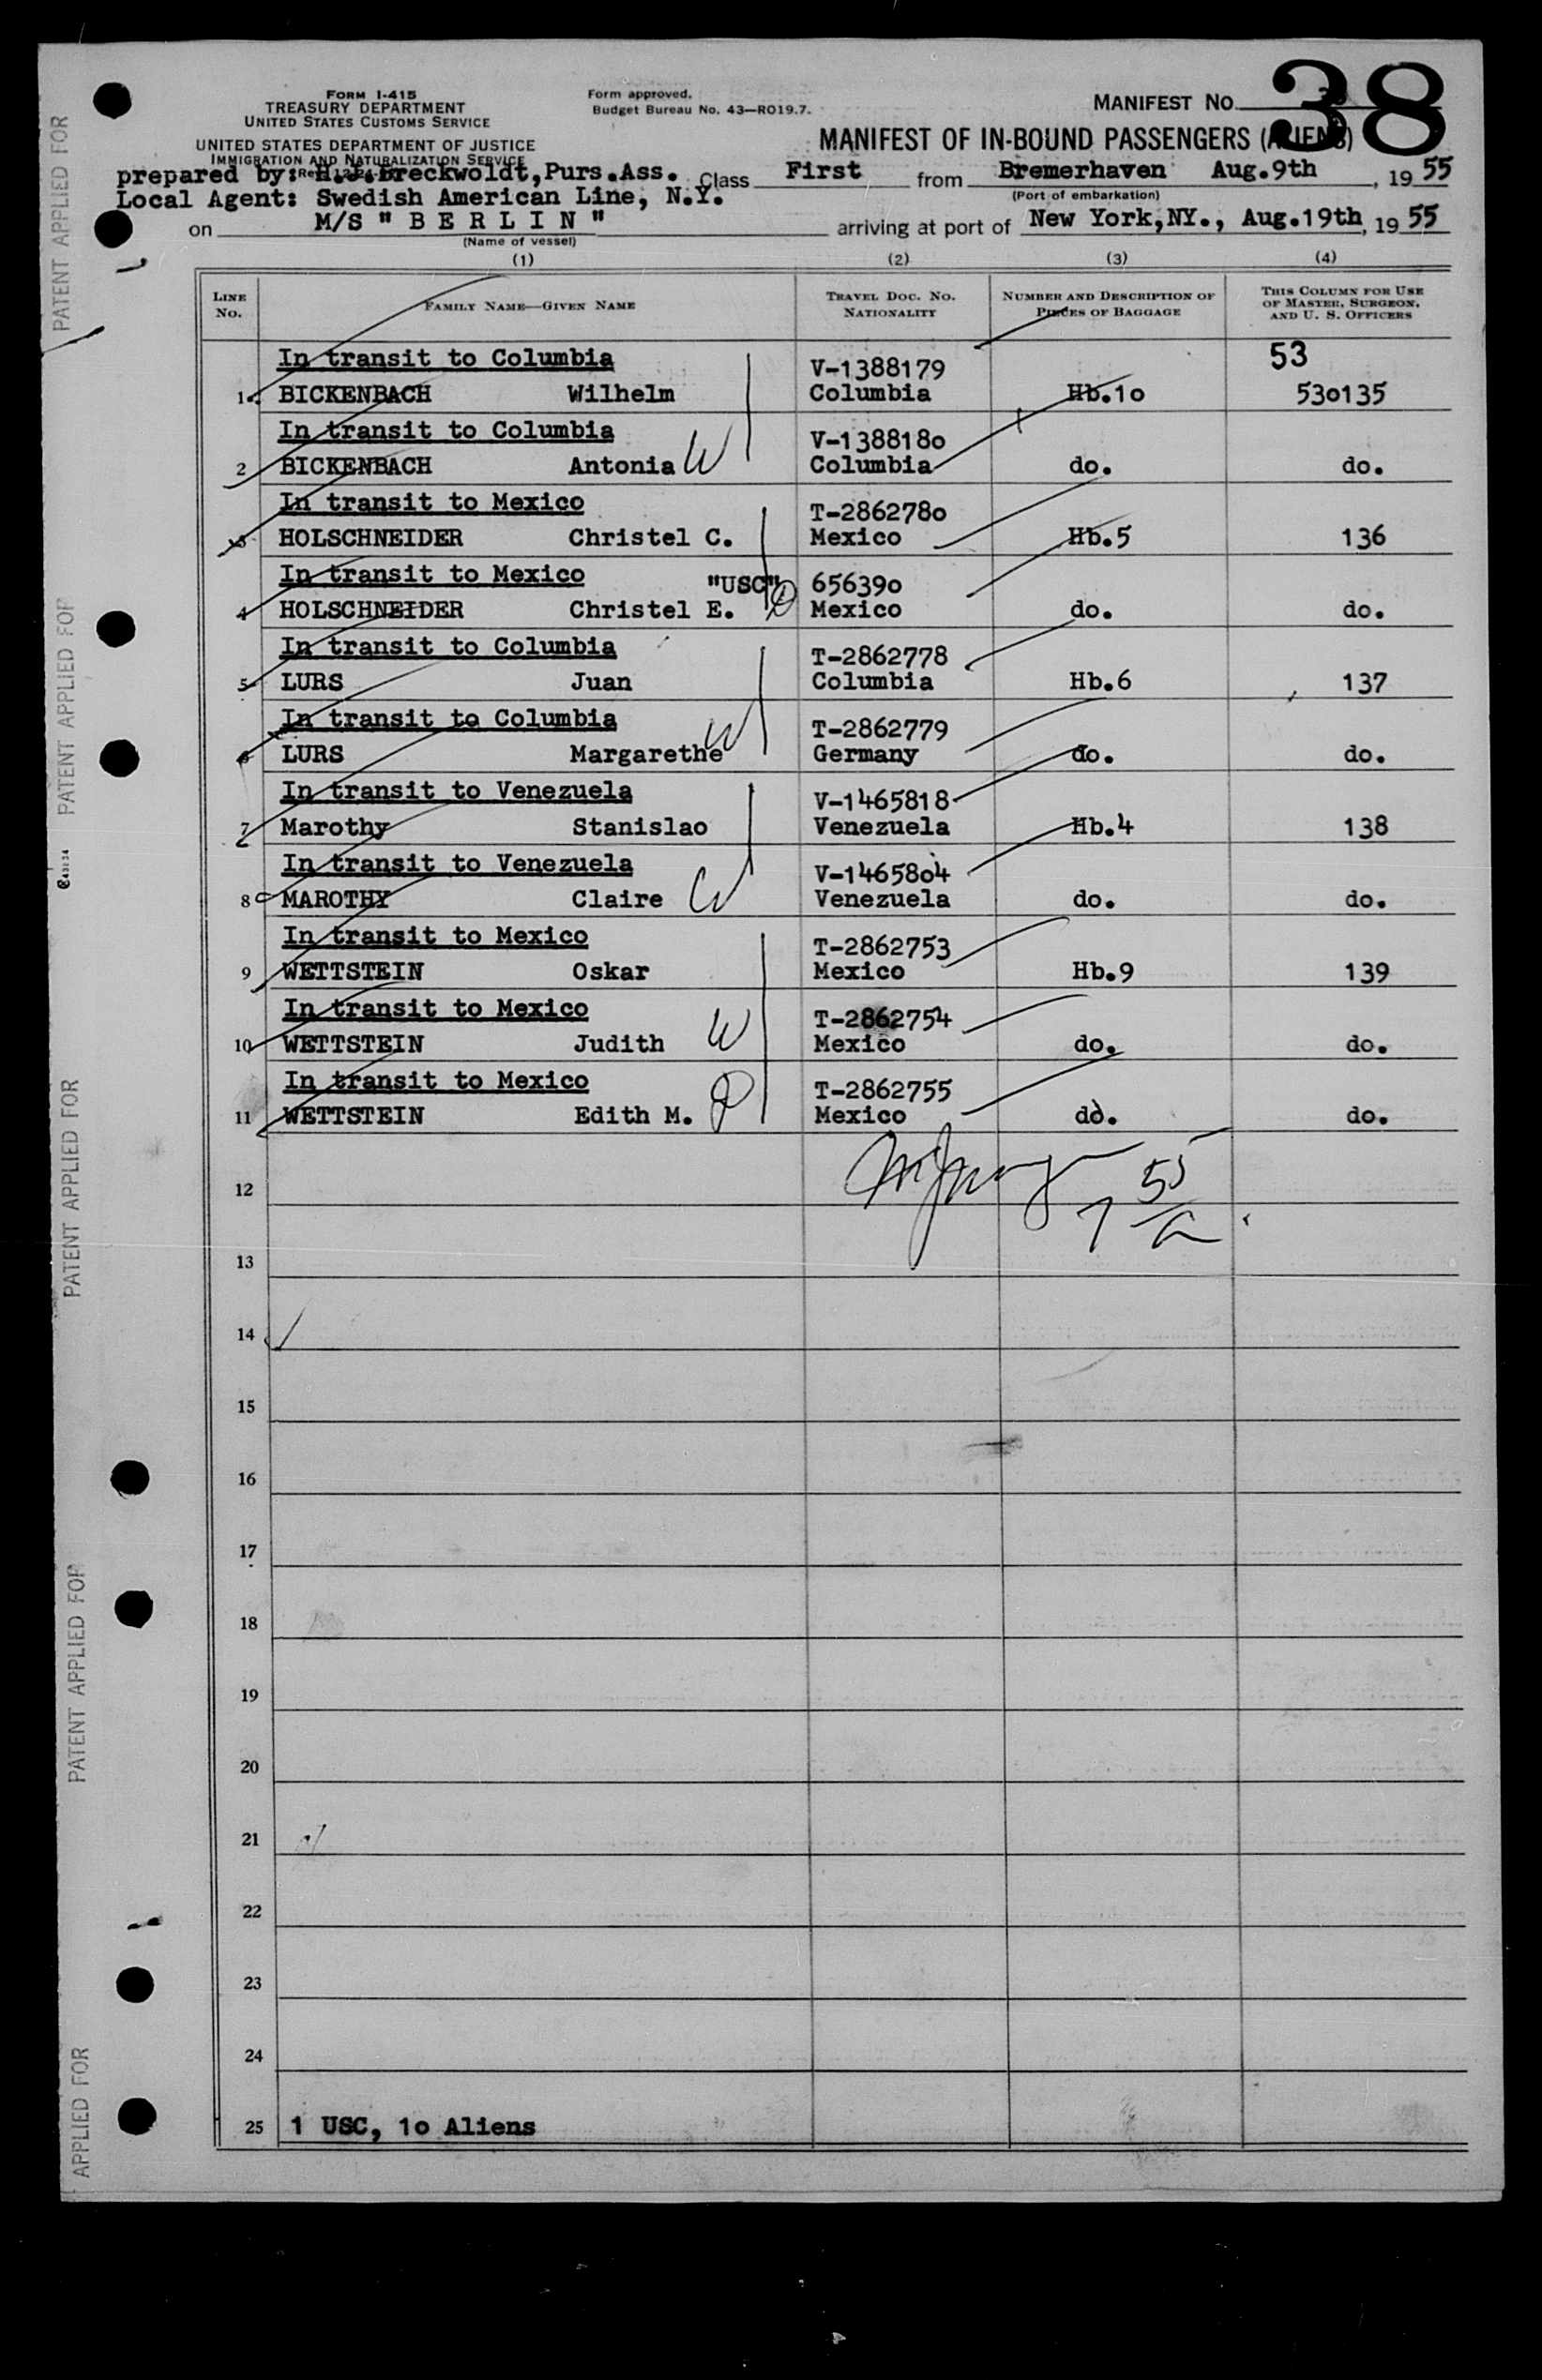 38
FORM I-415
TREASURY DEPARTMENT
UNITED STATES CUSTOMS SERVICE
UNITED STATES DEPARTMENT OF JUSTICE
IMMIGRATION AND NATURALIZATION SERVICE
Form approved.
Budget Bureau No. 43—RO19.7.
MANIFEST NO.
MANIFEST OF IN-BOUND PASSENGERS (ALIENS)
prepared by: Breckwoldt, Purs.Ass. Class First from Bremerhaven Aug.9th, 1955
(Port of embarkation)
Local Agent: Swedish American Line, N.Y.
on M/S " B E R L I N " arriving at port of New York,NY., Aug.19th, 1955
(Name of vessel)
(1) (2) (3) (4)
LINE No. FAMILY NAME—GIVEN NAME TRAVEL DOC. NO. NATIONALITY NUMBER AND DESCRIPTION OF PIECES OF BAGGAGE THIS COLUMN FOR USE OF MASTER, SURGEON, AND U. S. OFFICERS
In transit to Columbia V-1388179 53
1 BICKENBACH Wilhelm Columbia Hb.10 530135
In transit to Columbia V-1388180
2 BICKENBACH Antonia W Columbia do. do.
In transit to Mexico T-2862780
3 HOLSCHNEIDER Christel C. Mexico Hb.5 136
In transit to Mexico "USC" 656390
4 HOLSCHNEIDER Christel E. Mexico do. do.
In transit to Columbia T-2862778
5 LURS Juan Columbia Hb.6 137
In transit to Columbia T-2862779
6 LURS Margarethe W Germany do. do.
In transit to Venezuela V-1465818
7 Marothy Stanislao Venezuela Hb.4 138
In transit to Venezuela V-1465804
8 MAROTHY Claire W Venezuela do. do.
In transit to Mexico T-2862753
9 WETTSTEIN Oskar Mexico Hb.9 139
In transit to Mexico T-2862754
10 WETTSTEIN Judith W Mexico do. do.
In transit to Mexico T-2862755
11 WETTSTEIN Edith M. Mexico do. do.
12
13
14
15
16
17
18
19
20
21
22
23
24
25 1 USC, 10 Aliens
PATENT APPLIED FOR
PATENT APPLIED FOR
PATENT APPLIED FOR
PATENT APPLIED FOR
APPLIED FOR